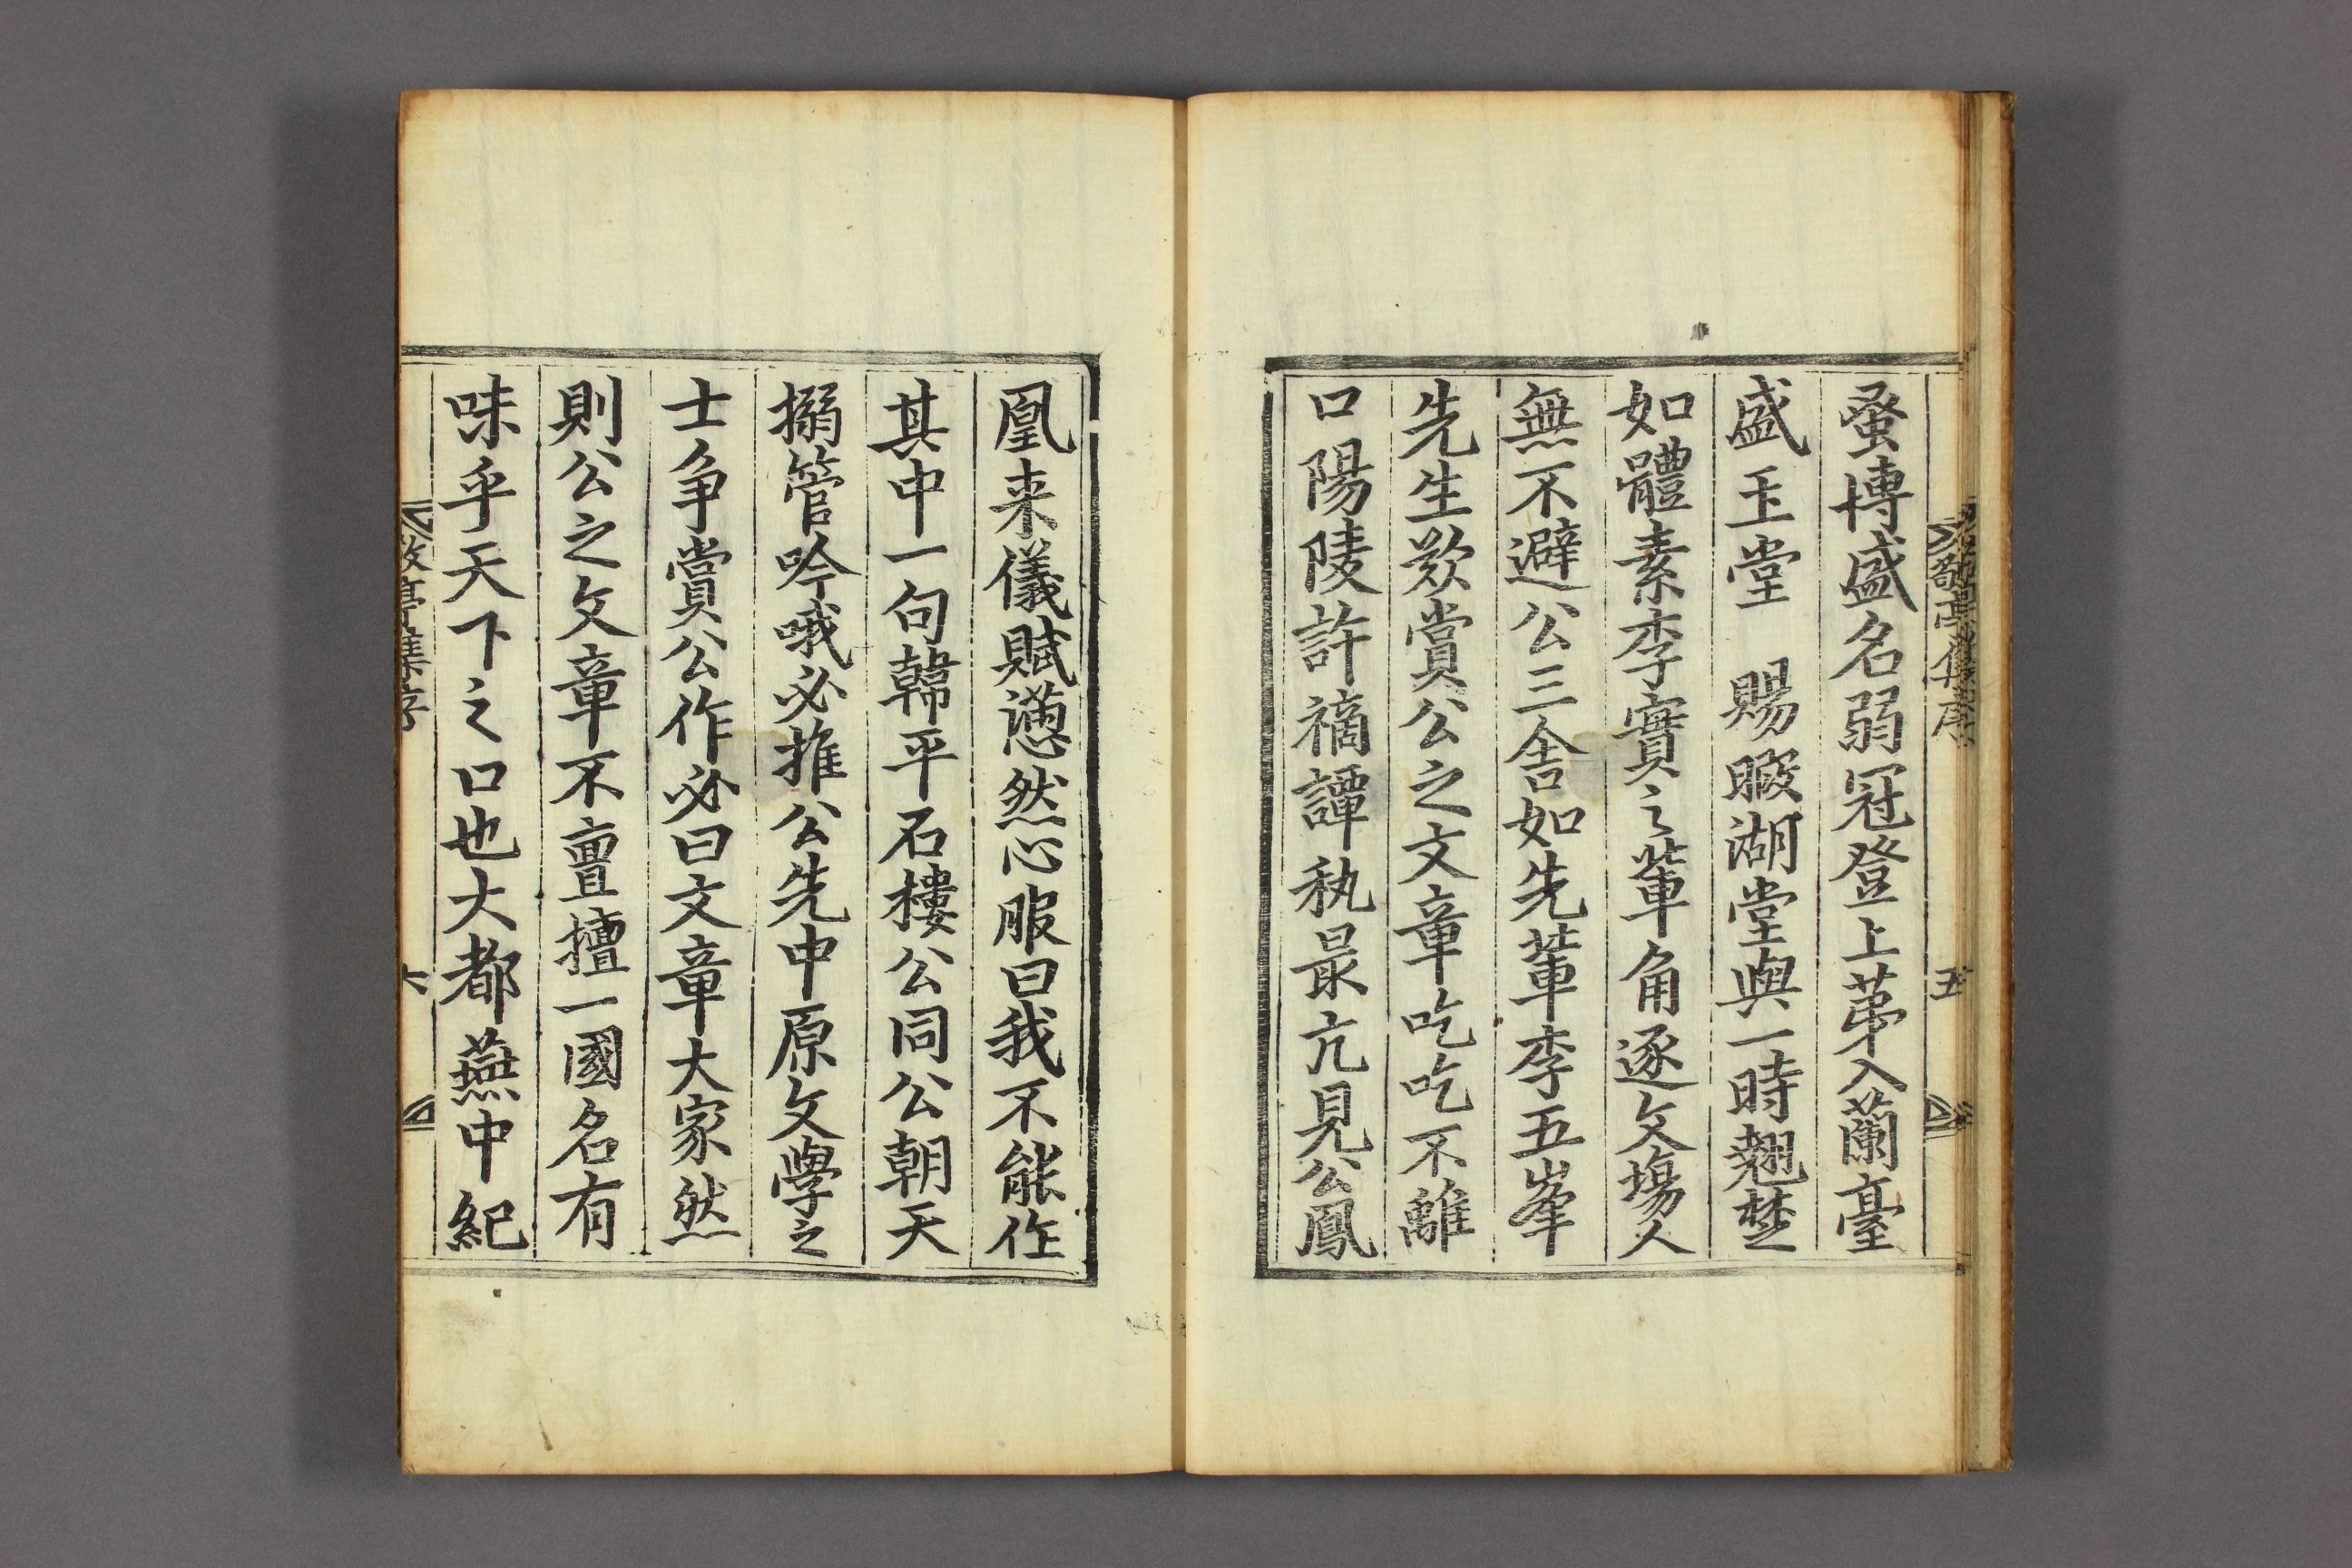 蚤搏盛名弱冠登上苐入蘭臺
盛玉堂 賜暇湖堂與一時翹楚
如體素李實之輩角逐文塲人
無不避公三舍如先輩李五峯
先生歎賞公之文章吃吃不離
口陽陵許䙗譚秇最亢見公鳳
凰来儀賦懣然心服曰我不能作
其中一句韓平石樓公同公朝天
搦管吟哦必推公先中原文學之
士争賞公作必曰文章大家然
則公之文章不亶擅一國名有
味乎天下之口也大都燕中紀
敬亭集序
五
六